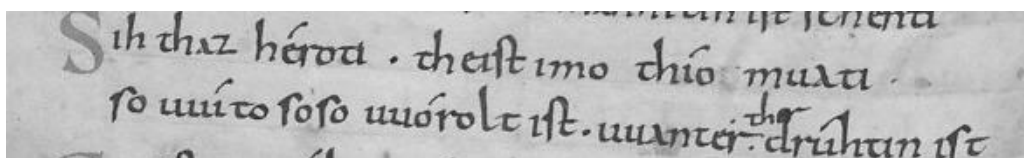 Sih thaz héroti . theist imo thío muati .
so uuíto soso uuórolt ist. uuanter ther drúhtin ist